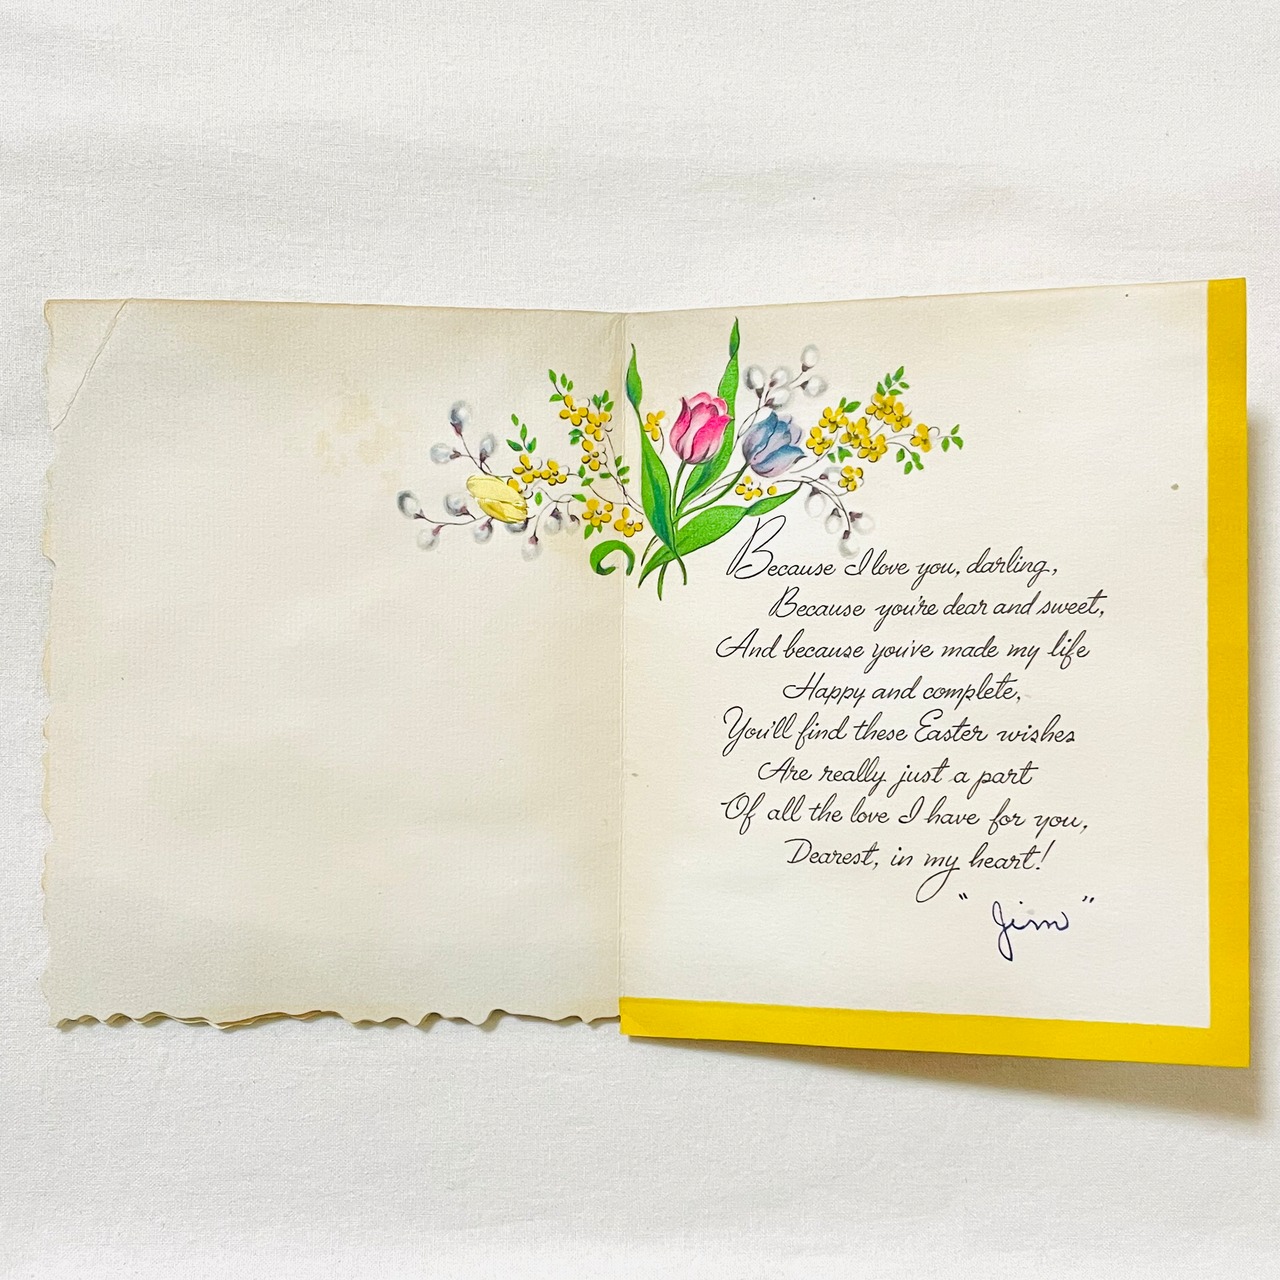 Because I love you, darling,
Because you're dear and sweet,
And because you've made my life
Happy and complete,
You'll find these Easter wishes
Are really just a part
Of all the love I have for you,
Dearest, in my heart!
"Jim"